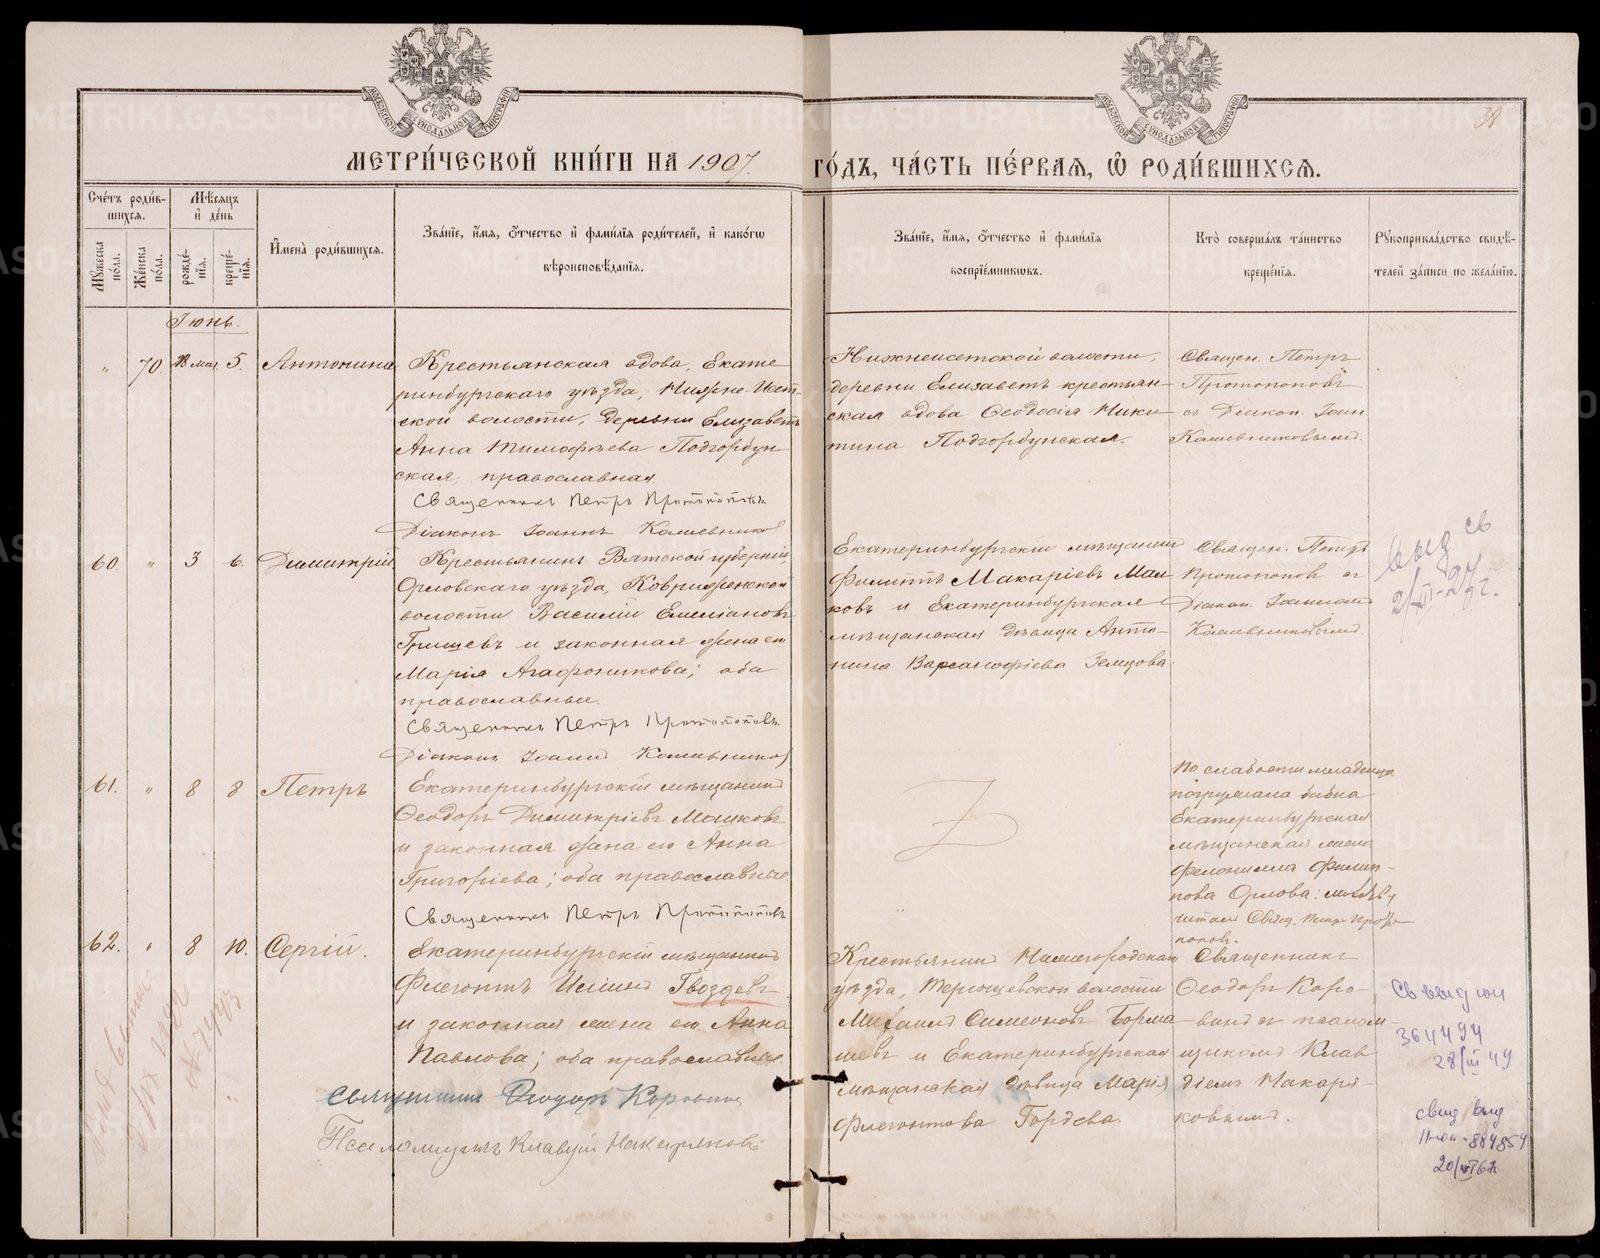 38
МЕТРИ́ЧЕСКОЙ КНИ́ГИ НА 1907.
ГО́ДЪ, ЧА́СТЬ ПЕ́РВАЯ, Ѿ РОДИ́ВШИХСЯ.
Сче́тъ роди́в-
шихся.
Мѣ́сяцъ
и҆ де́нь
Мꙋ́жеска по́ла.
Же́нска по́ла.
рожде́-
нїя.
креще́-
нїя.
И҆мена̀ роди́вшихся.
Зва́нїе, и҆́мя, ѻ҆́тчество и҆ фами́лїя роди́телей, и҆ како́гѡ
вѣроисповѣ́данїя.
Зва́нїе, и҆́мя, ѻ҆́тчество и҆ фами́лїя
воспрїе́мникѡвъ.
Кто̀ соверша́лъ та́инство
креще́нїя.
Рꙋкоприкла́дство свидѣ́-
телей за́писи по жела́нїю.
Іюнь.
" 70 мая 5. Антонина
Крестьянская вдова, Екате
ринбургскаго уѣзда, Нижне-Исет-
ской волости, деревни Елизаветъ
Анна Тимофѣева Подгорбун
ская, православная.
Священникъ Петръ Протопоповъ.
Діаконъ Іоаннъ
Нижнеисетской волости,
деревни Елизаветъ крестьян-
ская вдова Ѳеодосія Ники
тина Подгорбунская.
Священ. Петръ
Протопоповъ
съ Діакон. Іоан
60. " 3 6. Димитрій
Крестьянинъ Вятской губерніи,
Орловскаго уѣзда, Ковриженской
волости Василій Емеліановъ
Гришевъ и законная жена его
Марія Агафоникова; оба
православные.
Священникъ Петръ Протопоповъ.
Діаконъ Іоаннъ
Екатеринбургскій мѣщанинъ
Филиппъ Макаріевъ
ковъ и Екатеринбургская
мѣщанская дѣвица Анто-
нина Варсанофіева Земцова.
Священ. Петръ
Протопоповъ съ
Діакон. Іоанномъ
выд св
2/XII-27 г.
61. " 8 8 Петръ
Екатеринбургскій мѣщанинъ
Ѳеодоръ Димитріевъ Машковъ
и законная жена его Анна
Григоріева; оба православные.
Священникъ Петръ Протопоповъ
По слабости младенца
погружала бабка
Екатеринбургская
мѣщанская жена
Филип-
пова Орлова. молитву
читалъ Свящ. Петръ Прото-
поповъ.
62. " 8 10. Сергій.
Екатеринбургскій мѣщанинъ
Флегонтъ Ильинъ Гвоздевъ
и законная жена его Анна
Павлова; оба православные.
Священникъ Ѳеодоръ Коровинъ
Псаломщикъ Клавдій Макаряковъ
Крестьянинъ Нижегородскаго
уѣзда, Терюшевской волости
Михаилъ Симеоновъ Борма
шевъ и Екатеринбургская
мѣщанская дѣвица Марія
Флегонтова Гордѣева.
Священникъ
Ѳеодоръ Коро-
винъ съ псалом-
щикомъ Клав
діемъ Макаря-
ковымъ.
364494
28/III 49
свид выд
884854